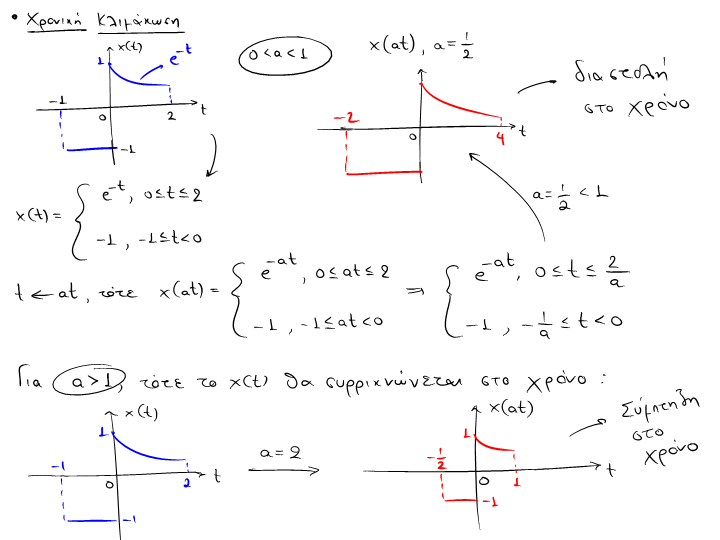 • Χρονική Κλιμάκωση
x(t)
1
e^{-t}
-1
0
2
t
-1
0<a<1
x(at), a=1/2
-2
0
4
t
διαστολή
στο χρόνο
a=1/2<1
x(t)= { e^{-t}, 0≤t≤2
-1, -1≤t<0
t←at, τότε x(at)= { e^{-at}, 0≤at≤2 ⇒ { e^{-at}, 0≤t≤2/a
-1, -1≤at<0
-1, -1/a≤t<0
Για a>1, τότε το x(t) θα συρρικνώνεται στο χρόνο:
x(t)
1
-1
0
2
t
-1
a=2
x(at)
1
-1/2
0
1
t
-1
Σύμπτηξη
στο
χρόνο